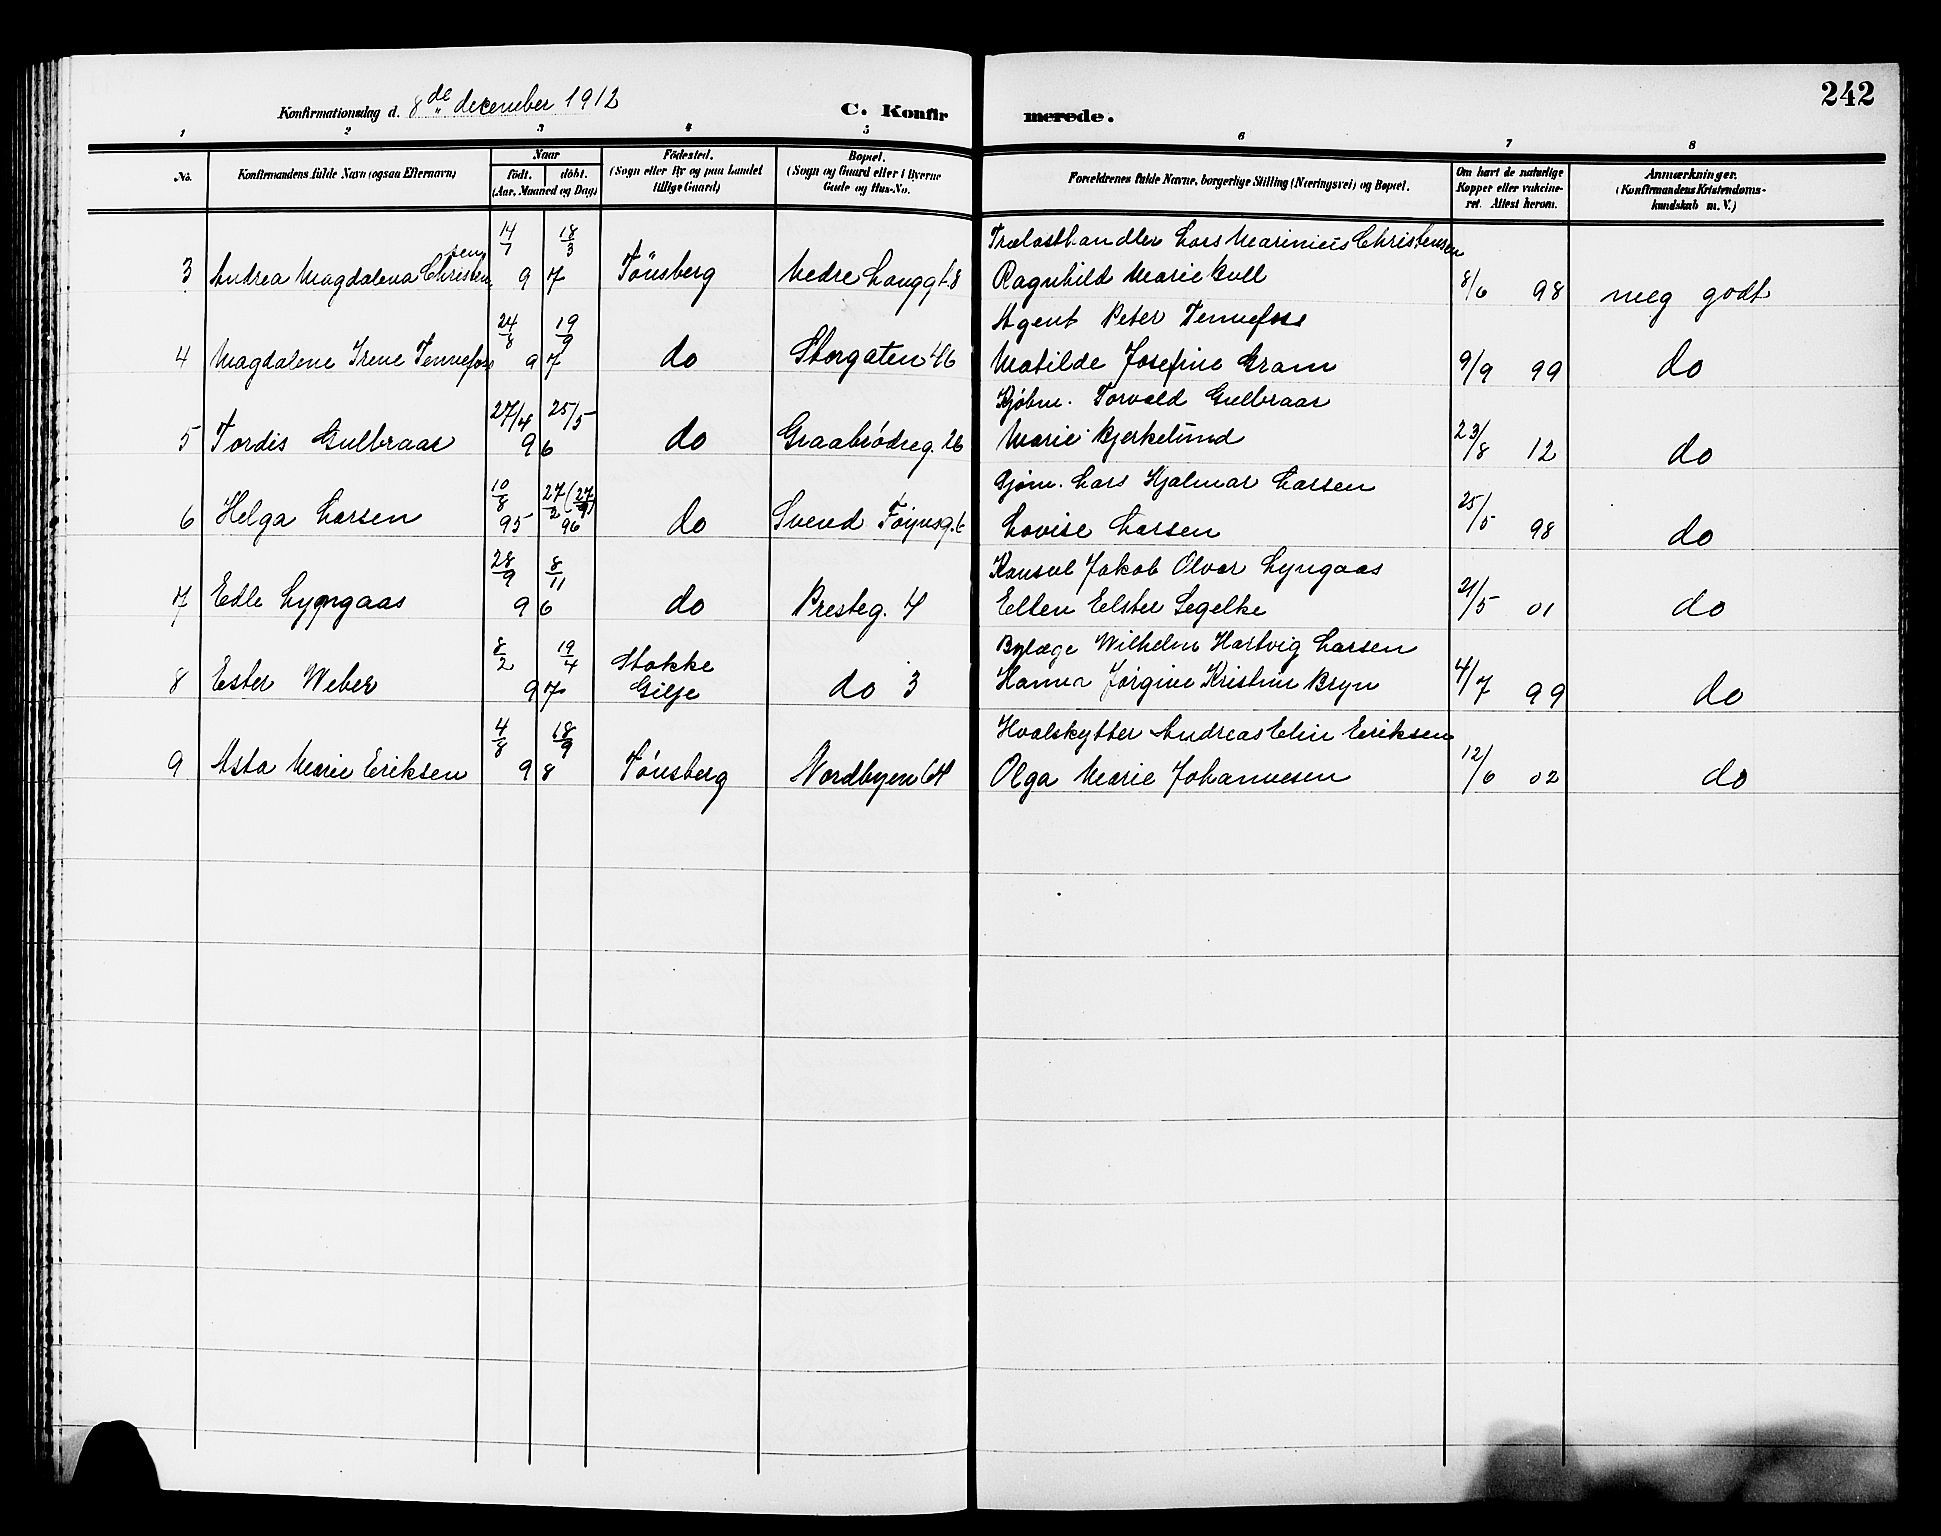 242
Konfirmationsdag d. 8de december 1912
C. Konfirmerede.
1 2 3 4 5 6 7 8
No.
Konfirmandens fulde Navn (ogsaa Efternavn)
Naar
födt. döbt.
(Aar, Maaned og Dag)
Födested.
(Sogn eller By og paa Landet
tillige Gaard)
Bopæl.
(Sogn og Gaard eller i Byerne
Gade og Hus-No.
Forældrenes fulde Navne, borgerlige Stilling (Næringsvei) og Bopæl.
Om havt de naturlige
Kopper eller vakcine-
ret. Attest herom.
Anmærkninger.
(Konfirmandens Kristendoms-
kundskab m. V.)
14/7 18/3 Trælasthandler Lars Marinius Christensen
3 Andrea Magdalena Christensen 97 Tönsberg Nedre Langgt. 8 Ragnhild Marie Kull 8/6 98 meg godt
24/8 19/9 Agent Peter Tennefoss
4 Magdalene Irene Tennefoss 97 do Storgaten 46 Matilde Josefine Gram 9/9 99 do
27/4 25/5 Kjöbm. Torvald Gulbraar
5 Tordis Gulbraar 96 do Graabrødreg. 26 Marie Bjerkelund 23/8 12 do
10/8 27/2 (27/9) Lars Hjalmar Larsen
6 Helga Larsen 95 96 do Svend Föynsg. 6 Lovise Larsen 25/5 98 do
28/9 8/11 Konsul Jakob Olvar Lyngaas
7 Edle Lyngaas 96 do Presteg. 4 Ellen Elster Segelke 21/5 01 do
8/2 19/4 Stokke Bylæge Wilhelm Hartvig Larsen
8 Ester Weber 97 Gilje do 3 Hanna Jörgine Kristine Bryn 4/7 99 do
4/8 18/9 Hvalskytter Andreas Elin Eriksen
9 Asta Marie Eriksen 98 Tönsberg Nordbyen 64 Olga Marie Johannesen 12/6 02 do